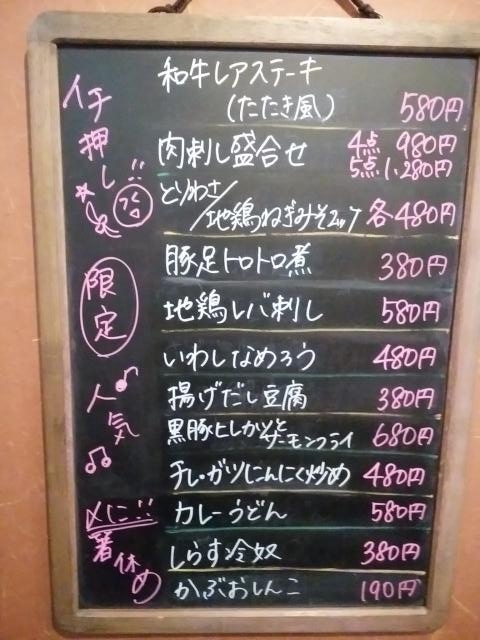 和牛レアステーキ
(たたき風) 580円
肉刺し盛合せ 4点 980円
5点 1,280円
とりわさ/
/地鶏ねぎみそユッケ 各480円
豚足トロトロ煮 380円
地鶏レバ刺し 580円
いわしなめろう 480円
揚げだし豆腐 380円
黒豚ヒレカツと
サーモンフライ 680円
チレ・ガツにんにく炒め 480円
カレーうどん 580円
しらす冷奴 380円
かぶおしんこ 190円
イチ押し!!
限定
人気
〆に!!
箸休め